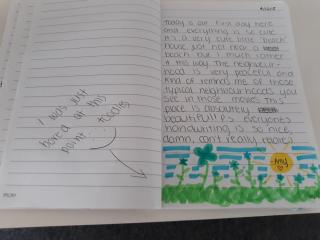 Today is our first day here
and everything is so cute
it's a very cute little beach
house just not near a
beach but I much rather
it this way. The neighbour-
hood is very peaceful and
kind of remind me of those
typical neighbourhoods you
see in those movies this
place is absolutely
beautiful!! P.S everyones
handwriting is so nice,
damn, can't really
I was just
bored at this
point
Amy